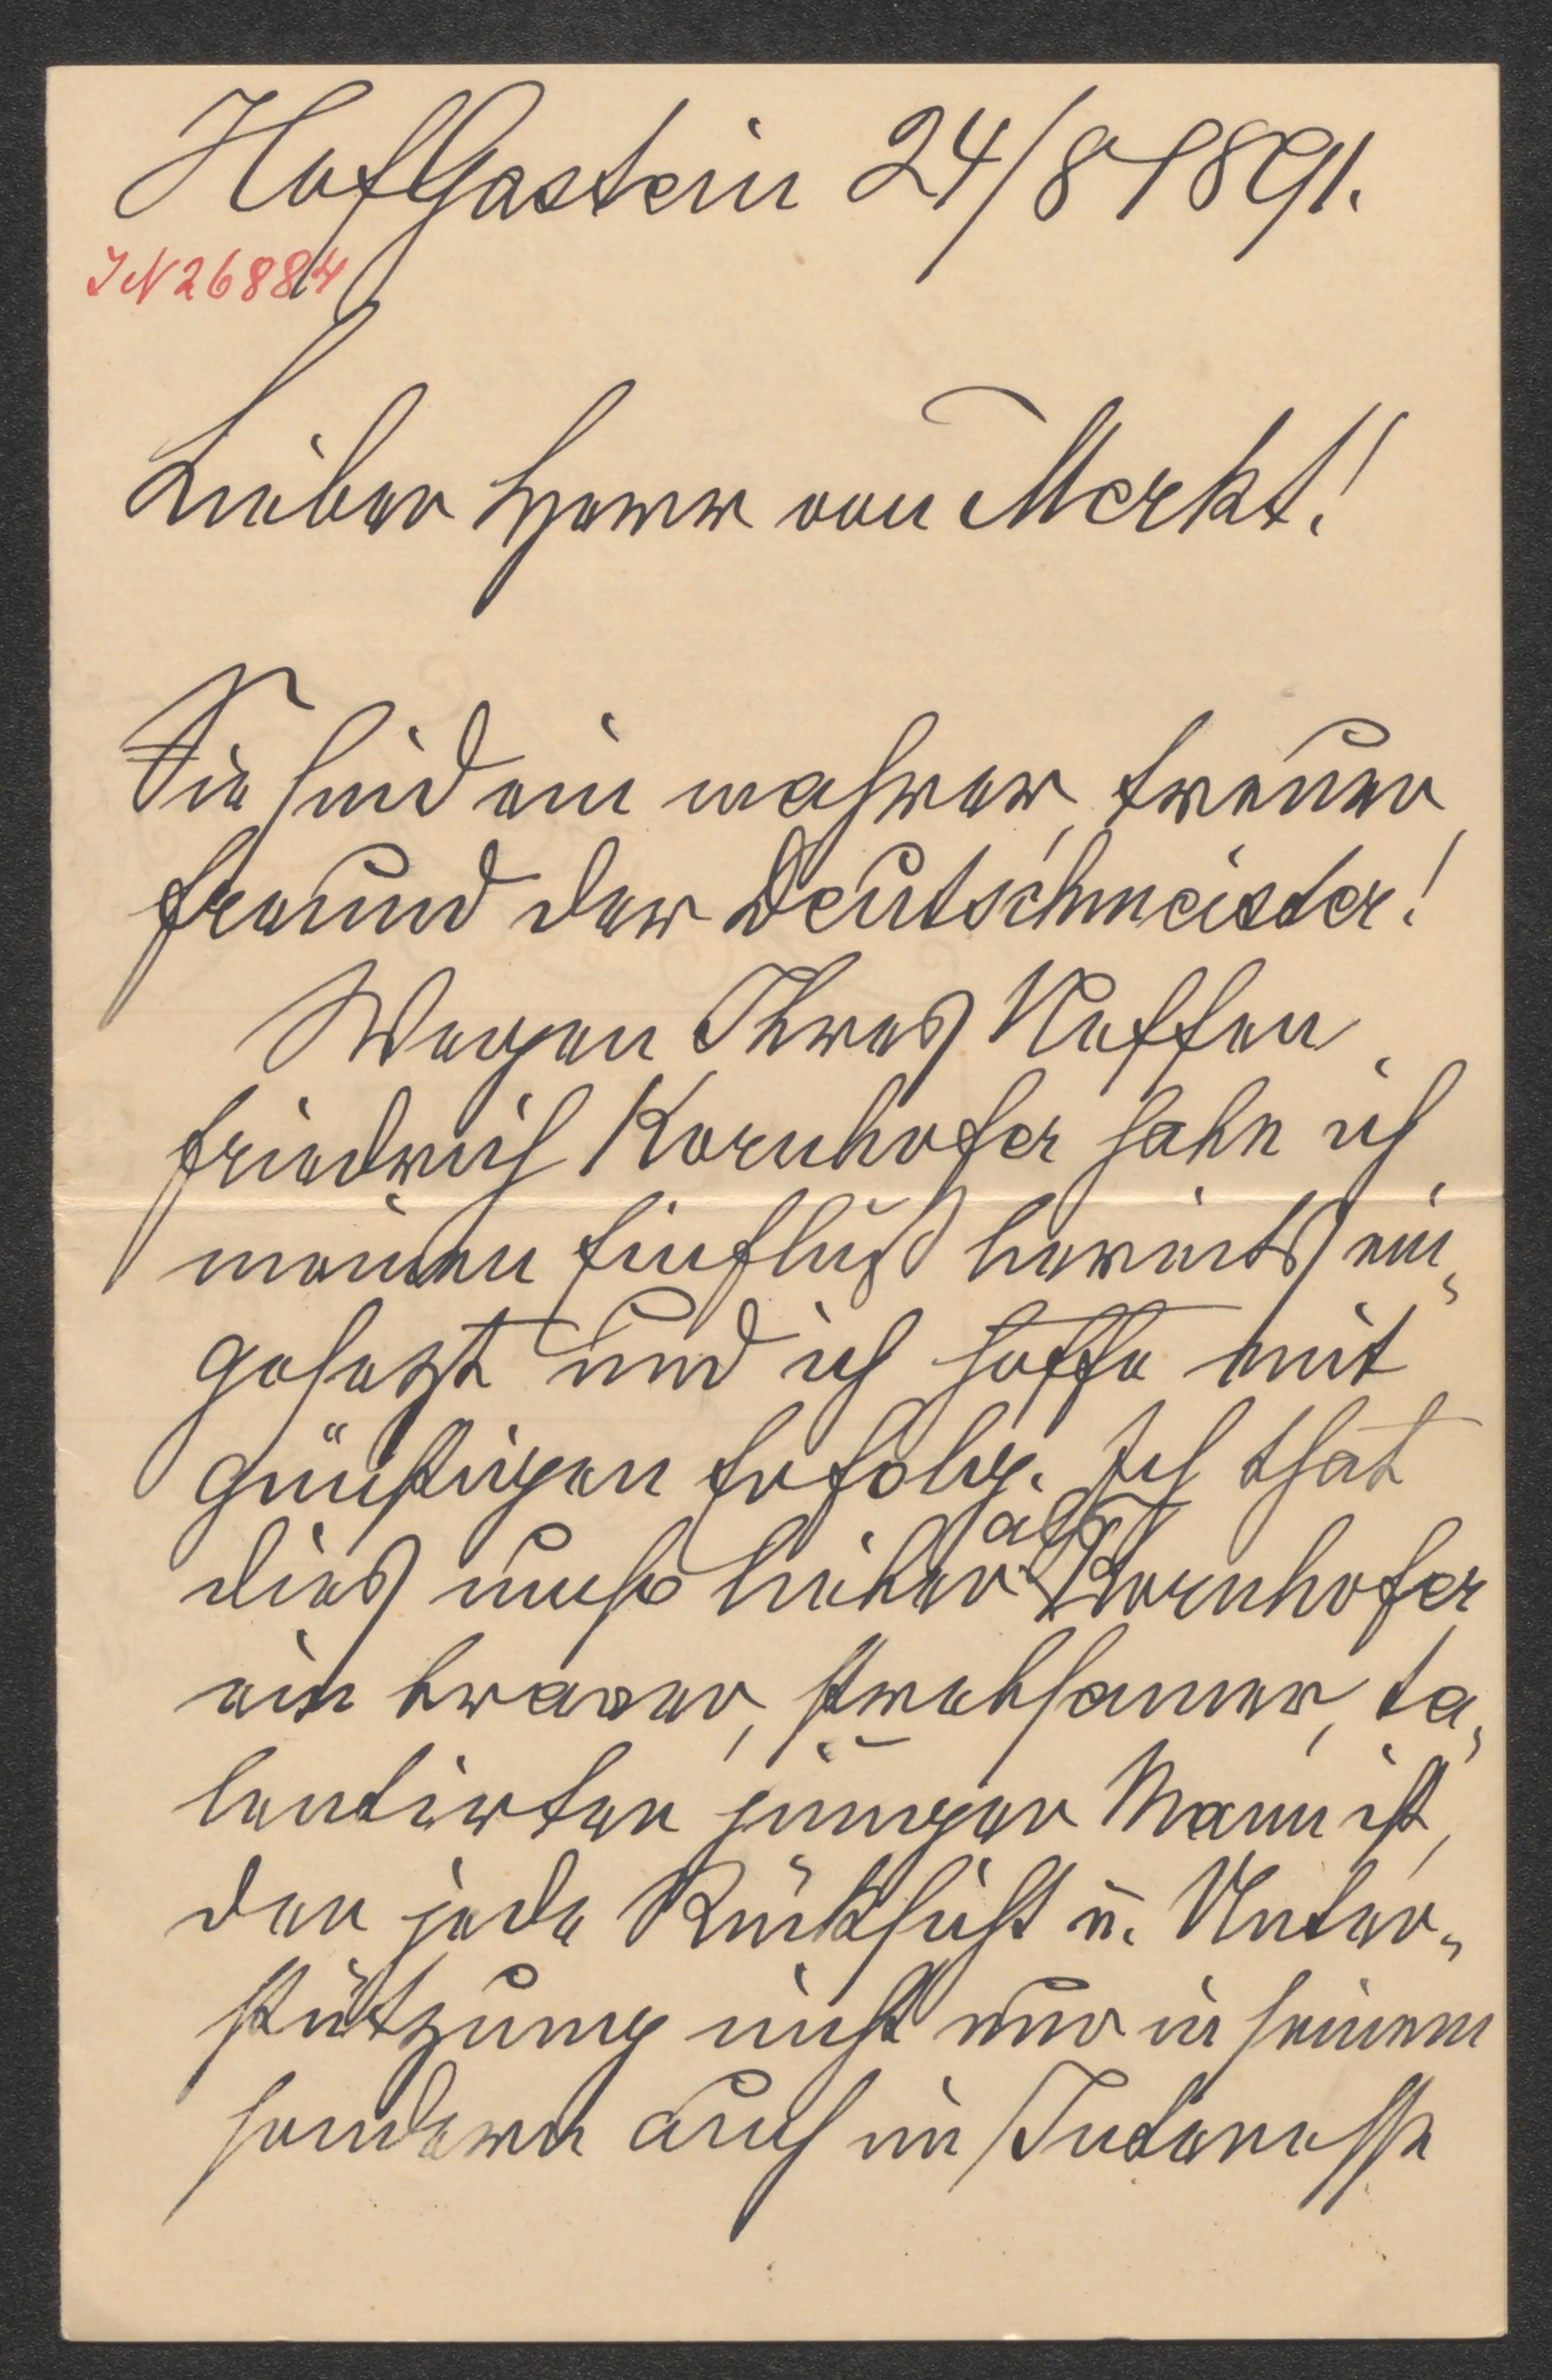 HofGastein 24/8 1891.
IN 26884
Lieber Herr von Merkt!
Sie sind ein wahrer, treuer
Freund der Deutschmeister!
Wegen Ihres Neffen
Friedrich Kornhofer habe ich
meinen Einfluß bereits ein„
gesetzt und ich hoffe mit
günstigen Erfolg. Ich that
dies umso lieber als Kornhofer
ein braver, strebsamer, ta„
lentirter junger Mann ist,
der jede Rücksicht u. Unter„
stützung nicht nur in seinem
sondern auch im Interesse